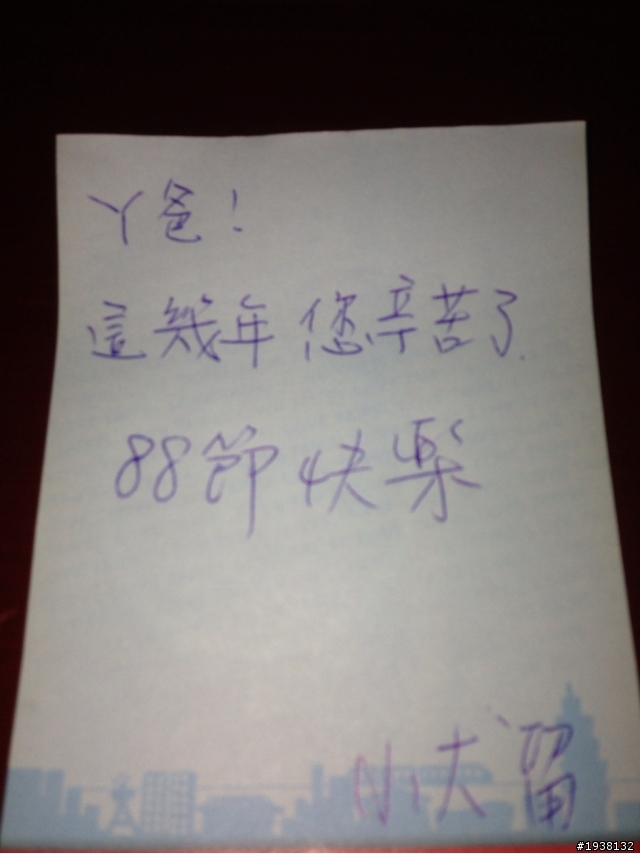 ㄚ爸！
這幾年您辛苦了.
88節快樂
小犬 留
#1938132